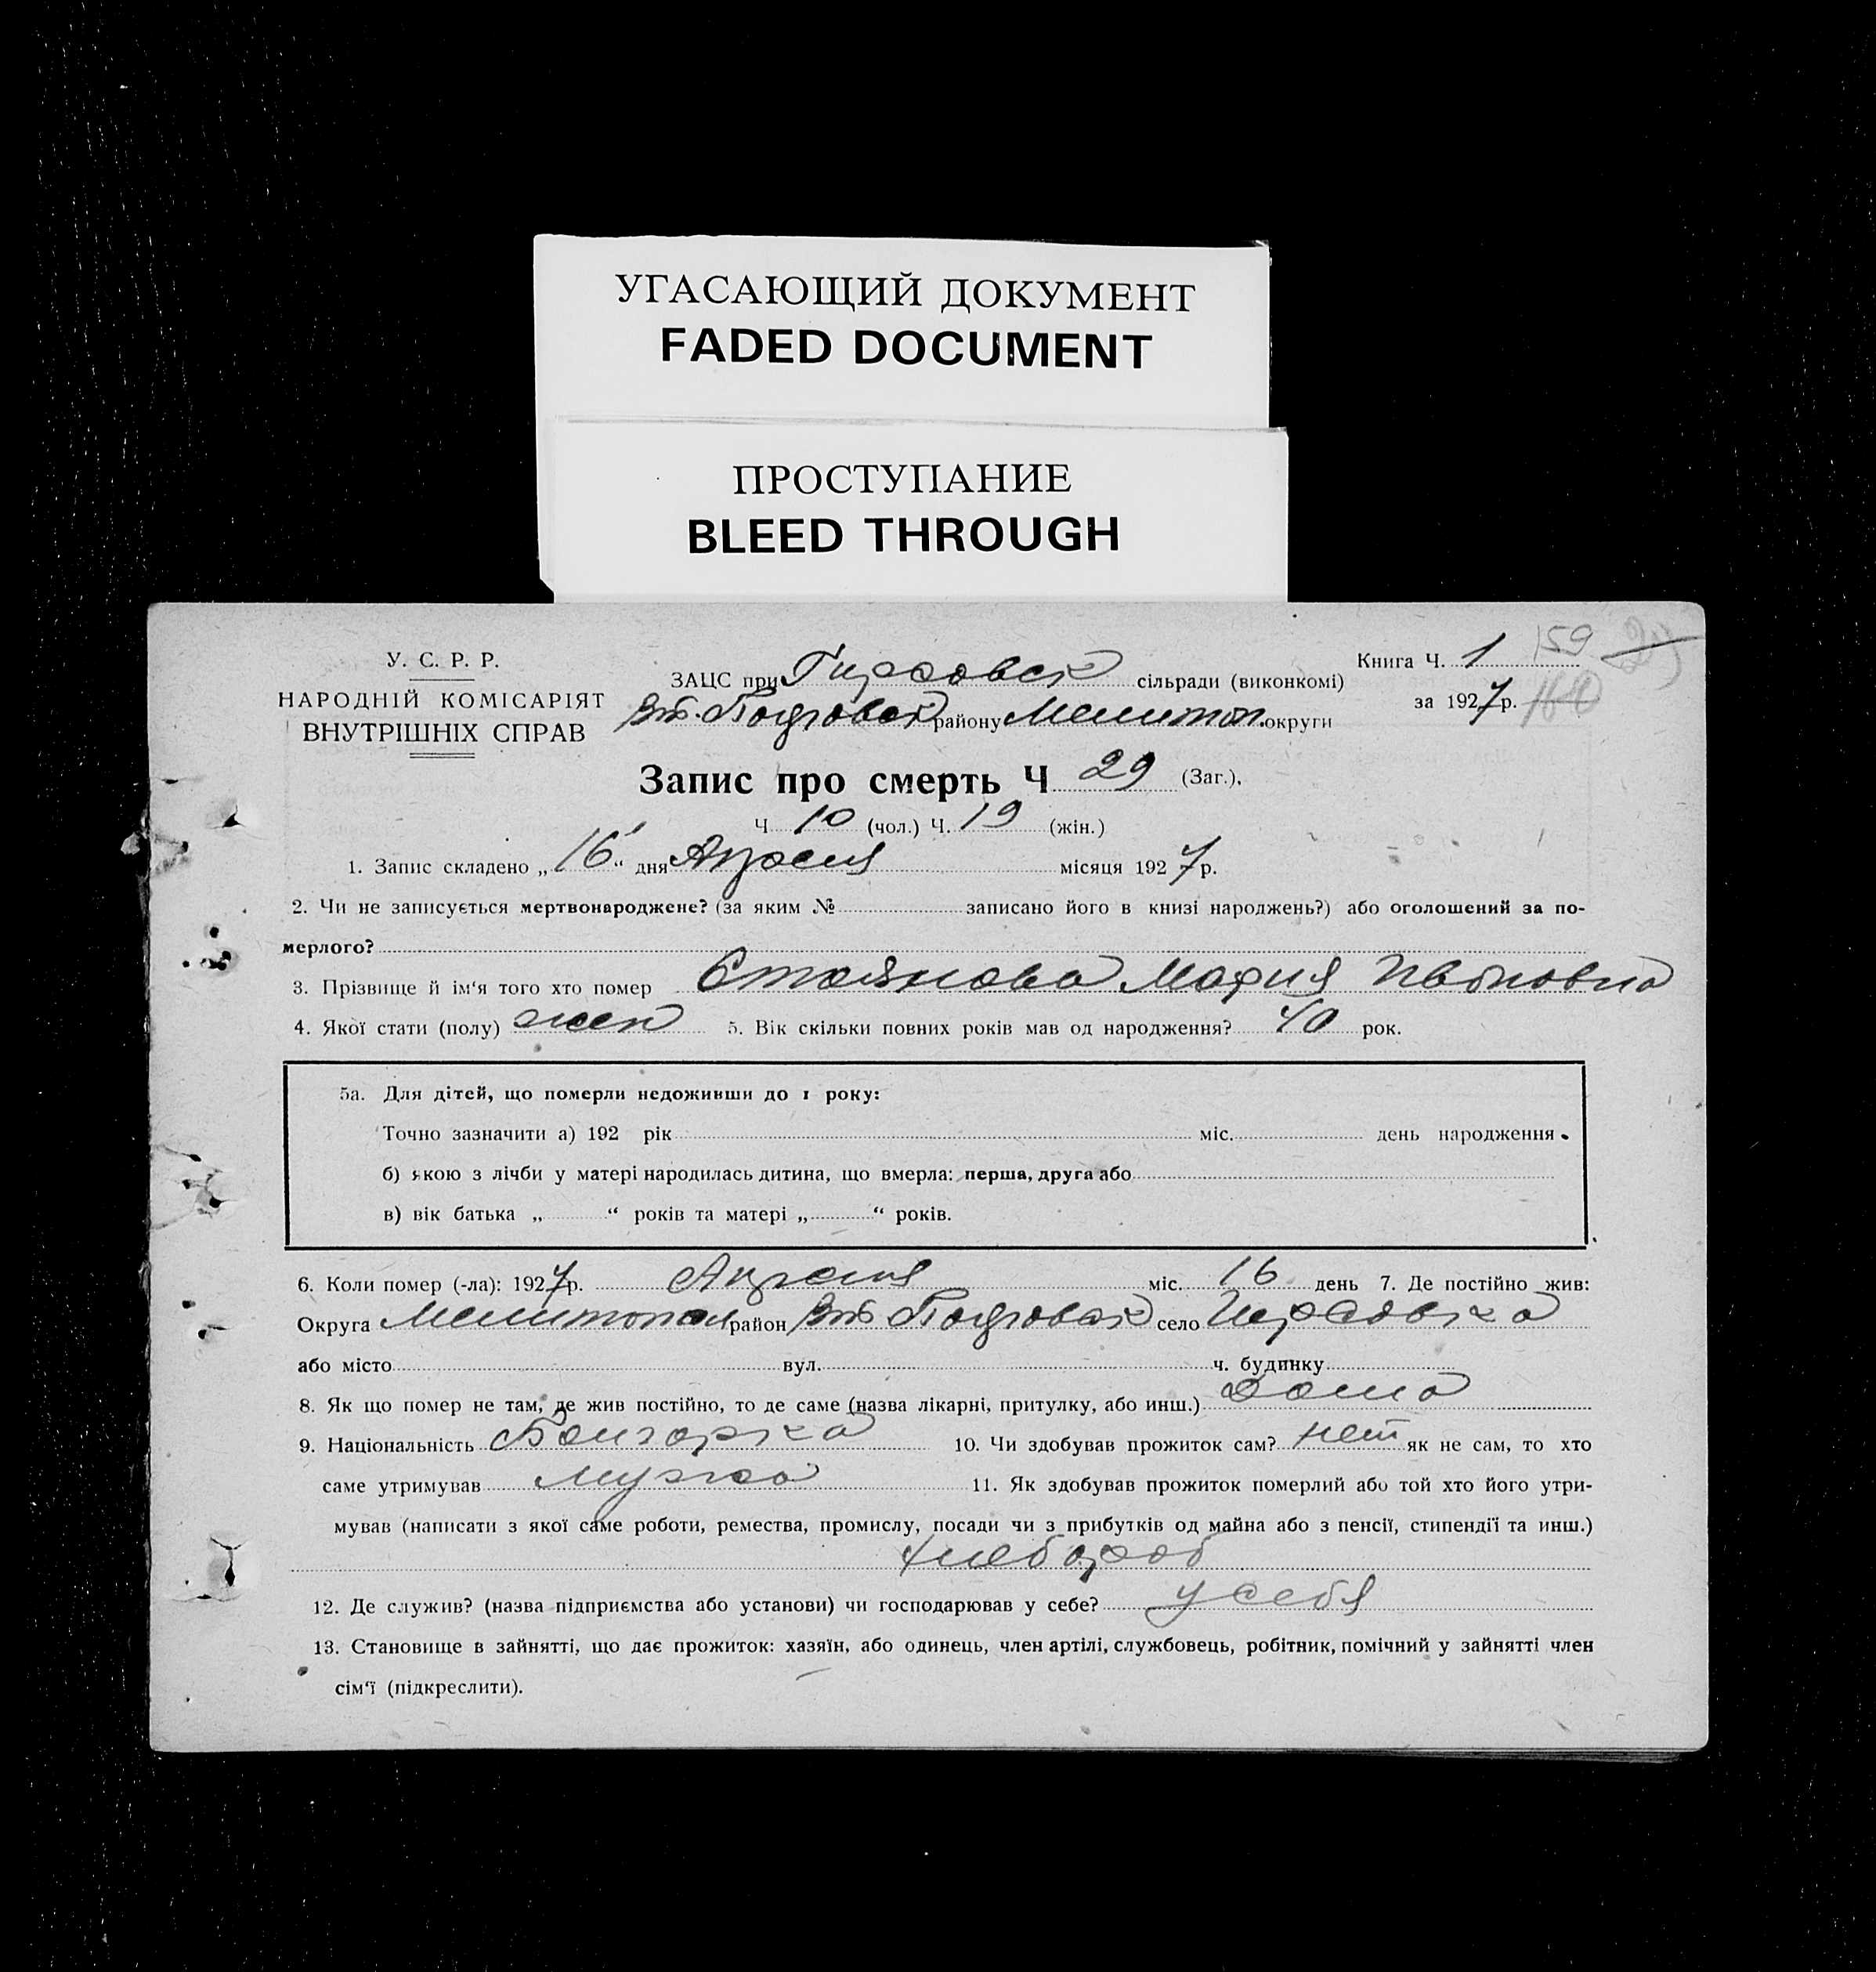 УГАСАЮЩИЙ ДОКУМЕНТ
FADED DOCUMENT
ПРОСТУПАНИЕ
BLEED THROUGH
У. С. Р. Р.
НАРОДНІЙ КОМІСАРІЯТ
ВНУТРІШНІХ СПРАВ
ЗАЦС при Гирсовск сільради (виконкомі)
Вт. Покровск району Мелитоп. округи
Книга Ч. 1 159
за 1927 р.
Запис про смерть Ч 29 (Заг.).
Ч. 10 (чол.) Ч. 19 (жін.)
1. Запис складено „16“ дня Апреля місяця 1927 р.
2. Чи не записується мертвонароджене? (за яким № записано його в книзі народжень?) або оголошений за по-
мерлого?
3. Прізвище й ім‘я того хто помер Стоянова Мария Ивановна
4. Якої стати (полу) жен 5. Вік скільки повних років мав од народження? 40 рок.
5а. Для дітей, що померли недоживши до 1 року:
Точно зазначити а) 192 рік міс. день народження.
б) якою з лічби у матері народилась дитина, що вмерла: перша, друга або
в) вік батька „ “ років та матері „ “ років.
6. Коли помер (-ла): 1927 р. Апреля міс. 16 день 7. Де постійно жив:
Округа Мелитопол район Вт Покровск село Гирсовка
або місто вул. ч. будинку
8. Як що помер не там, де жив постійно, то де саме (назва лікарні, притулку, або инш.) дома
9. Національність Болгарка 10. Чи здобував прожиток сам? нет як не сам, то хто
саме утримував мужа 11. Як здобував прожиток померлий або той хто його утри-
мував (написати з якої саме роботи, ремества, промислу, посади чи з прибутків од майна або з пенсії, стипендії та инш.)
хлебороб
12. Де служив? (назва підприємства або установи) чи господарював у себе? у себя
13. Становище в зайнятті, що дає прожиток: хазяїн, або одинець, член артілі, службовець, робітник, помічний у зайнятті член
сім‘ї (підкреслити).